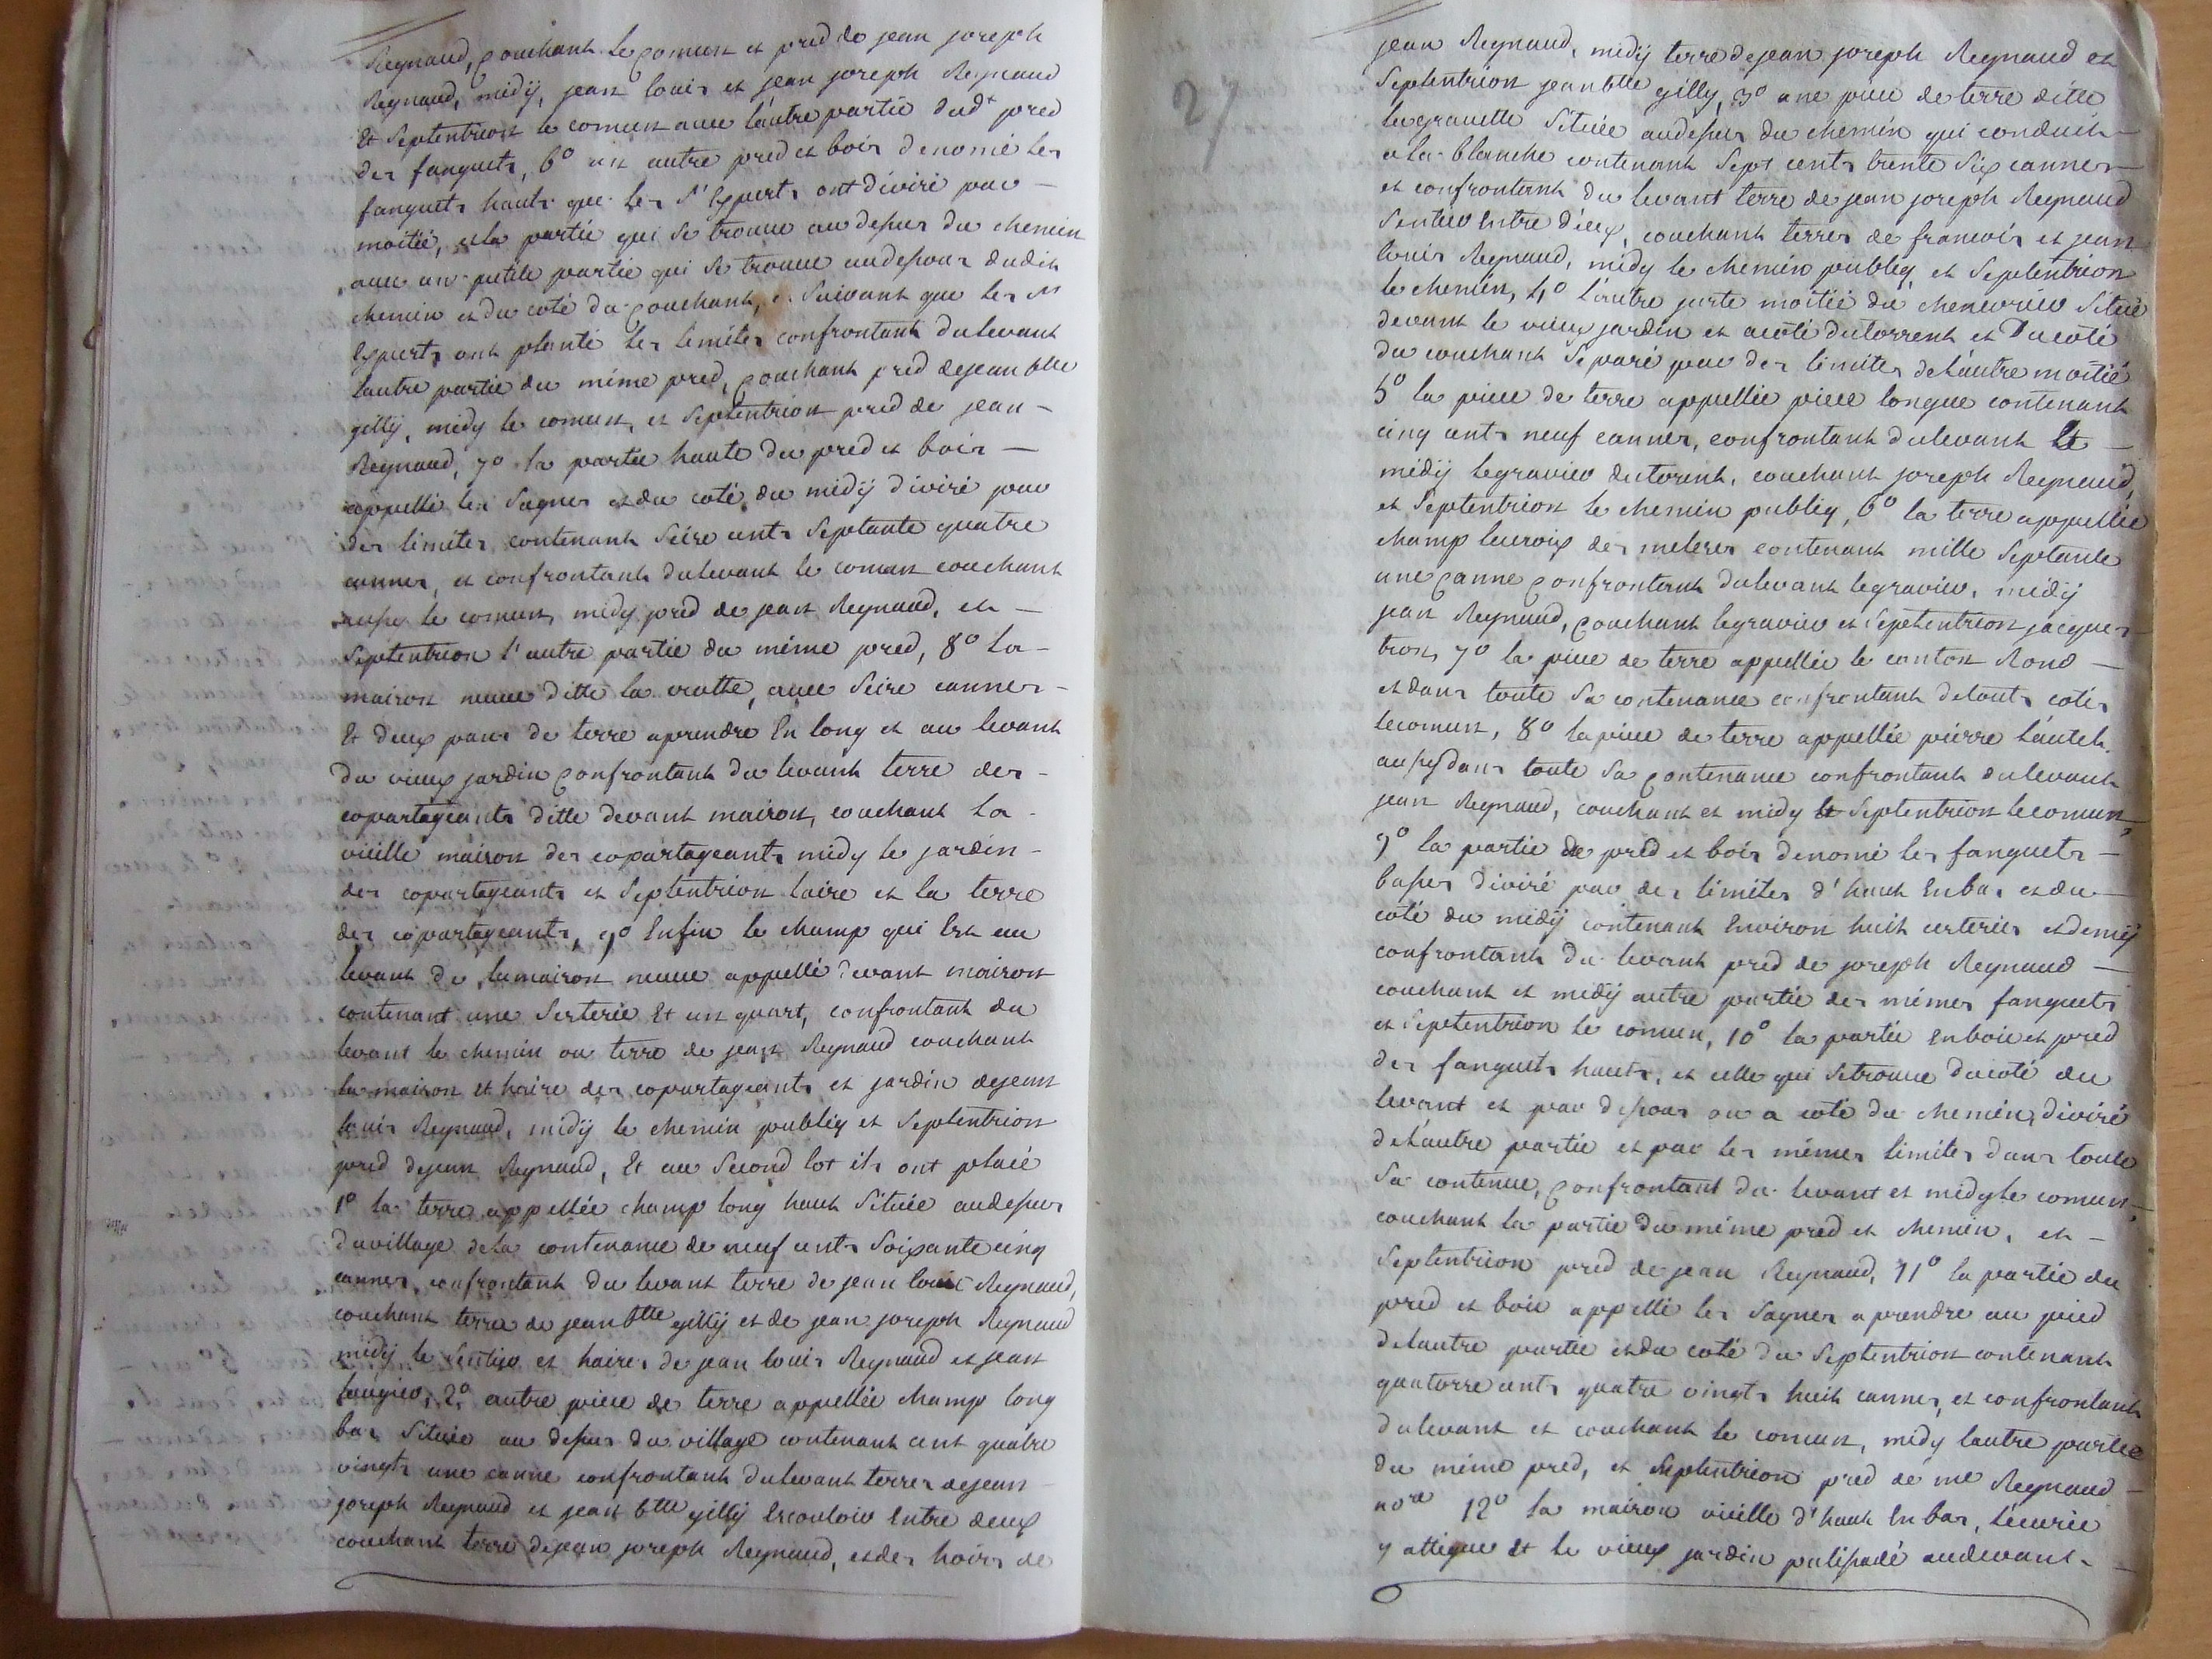 Reynaud, couchant le comun et pred de jean joseph
Reynaud, midÿ, jean louis et jean joseph Reynaud
Et Septentrion le comun avec l'autre partie dud.t pred
des fanguets, 6° un autre pred et bois denomé les
fanguets hauts que les Srs Experts ont divisé par –
moitié, et la partie qui se trouve au dessus du chemin
avec un petite partie qui se trouve au dessous dudit
chemin et du coté du couchant, Suivant que les Srs
Experts ont planté les limites confrontant du levant
lautre partie du même pred, couchant pred de jean btte
gillÿ, midy le comun, et Septentrion pred de jean –
Reynaud, 7° la partie haute du pred et bois –
appellé les Sagnes et du coté du midÿ divisé par
des limites contenant Seise cents Septante quatre
cannes, et confrontant du levant le comun couchant
aussy le comun, midy pred de jean Reynaud, et –
Septentrion l'autre partie du même pred, 8° La –
maison neuve ditte la crotte, avec Seise cannes –
Et deux pans de terre aprendre En long et au levant
du vieux jardin confrontant du levant terre des –
copartageants ditte devant maison, couchant La –
vieille maison des copartageants midy le jardin –
des copartageants et Septentrion laire et la terre
des copartageants, 9° Enfin le champ qui Est au
levant de la maison neuve appellé devant maison
contenant une Sesterée Et un quart, confrontant du
levant le chemin ou terre de jean Reynaud couchant
la maison et haire des copartageants et jardin de jean
louis Reynaud, midÿ le chemin publiq et Septentrion
pred de jean Reynaud, Et au Second lot ils ont placé
1° la terre appellée champ long haut Située au dessus
du village de la contenance de neuf cents Soixante cinq
cannes, confrontant du levant terre de jean louis Reynaud,
couchant terre de jean btte gillÿ et de jean joseph Reynaud
midÿ le Sentier et haires de jean louis Reynaud et jean
laugier, 2° autre piece de terre appellée champ long
bas Située au dessus du village contenant cent quatre
vingts une canne confrontant du levant terres de jean
joseph Reynaud et jean btte gillÿ Escouloir Entre deux
couchant terre de jean joseph Reynaud, et des hoirs de
27
jean Reynaud, midÿ terre de jean joseph Reynaud et
Septentrion jean btte gilly, 3° une piece de terre ditte
la gravette Située au dessus du chemin qui conduit –
a la blanche contenant Sept cents trente Six cannes –
et confrontant du levant terre de jean joseph Reynaud
Sentier Entre d'eux, couchant terres de francois et jean
louis Reynaud, midy le chemin publiq et Septentrion
le chemin, 4° l'autre juste moitié du chenevier Situé
devant le vieux jardin et acoté du torrent et Du coté
du couchant Separé par des limites de l'autre moitié
5° la piece de terre appellée piece longue contenant
cinq cents neuf cannes, confrontant du levant Et –
midÿ le gravier du torrent, couchant joseph Reynaud,
et Septentrion le chemin publiq, 6° la terre appellée
champ lacroix des meleses contenant mille Septante
une canne confrontant du levant le gravier, midÿ
jean Reynaud, couchant le gravier et Septentrion jacques
tron, 7° la piece de terre appellée le canton Rond –
et dans toute Sa contenance confrontant de touts cotés
le comun, 8° la piece de terre appellée pierre l'auteh
aussy dans toute Sa contenance confrontant du levant
jean Reynaud, couchant et midy Et Septentrion le comun,
9° la partie de pred et bois denomé les fanguets –
basses divisé par des limites d'haut Enbas et du –
coté du midÿ contenant Environ huit cesterées et demÿ
confrontant du levant pred de joseph Reynaud –
couchant et midÿ autre partie des mêmes fanguets
et Septentrion le comun, 10° la partie En bois et pred
des fanguets hauts, et celle qui Se trouve du coté du
levant et par dessous ou a coté du chemin, divisé
de l'autre partie et par les mêmes limites dans toute
Sa contenue, confrontant du levant et midy le comun,
couchant la partie du même pred et chemin, et –
Septentrion pred de jean Reynaud, 11° la partie du
pred et bois appellé les Sagnes a prendre au pied
de lautre partie et du coté du Septentrion contenant
quatorze cents quatre vingts huit cannes, et confrontant
du levant et couchant le comun, midy lautre partie
du même pred, et Septentrion pred de me Reynaud –
nore 12° la maison vieille d'haut En bas, l'écurie
y attigue Et le vieux jardin palissadé au devant –